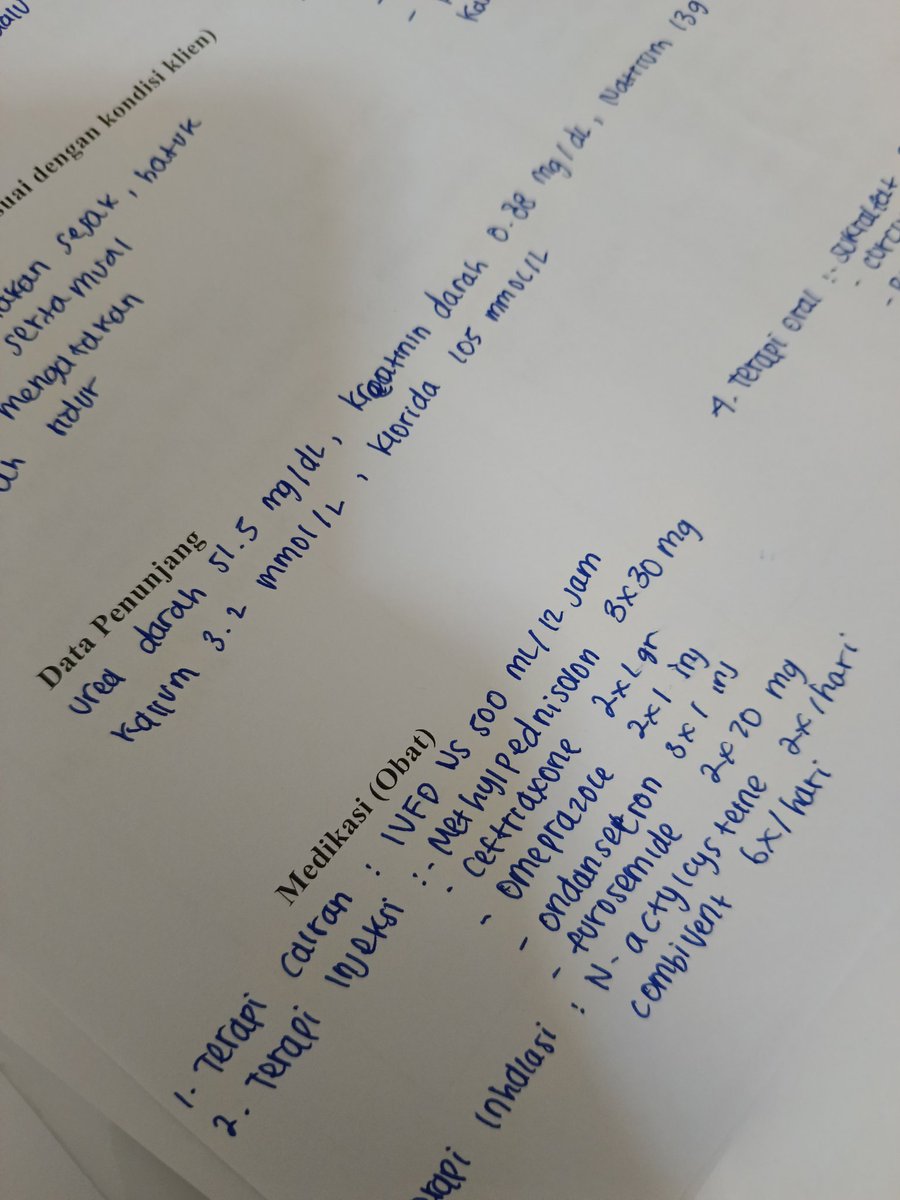 suai dengan kondisi klien)
sesak, batuk
serta mual
mengatakan
Data Penunjang
Urea darah 51.5 mg/dL, kreatinin darah 0.38 mg/dL, Natrium 139
Kalium 3.2 mmol/L, klorida 105 mmol/L
Medikasi (Obat)
1. Terapi cairan : IVFD NS 500 mL/12 jam
2. Terapi Injeksi :- Methylpednisolon 3x30 mg
- Ceftriaxone 2x1 gr
- omeprazole 2x1 inj
- ondansetron 3x1 inj
- furosemide 2x20 mg
Inhalasi : N-actylcysteine 2x/hari
combivent 6x/hari
4. Terapi oral :-